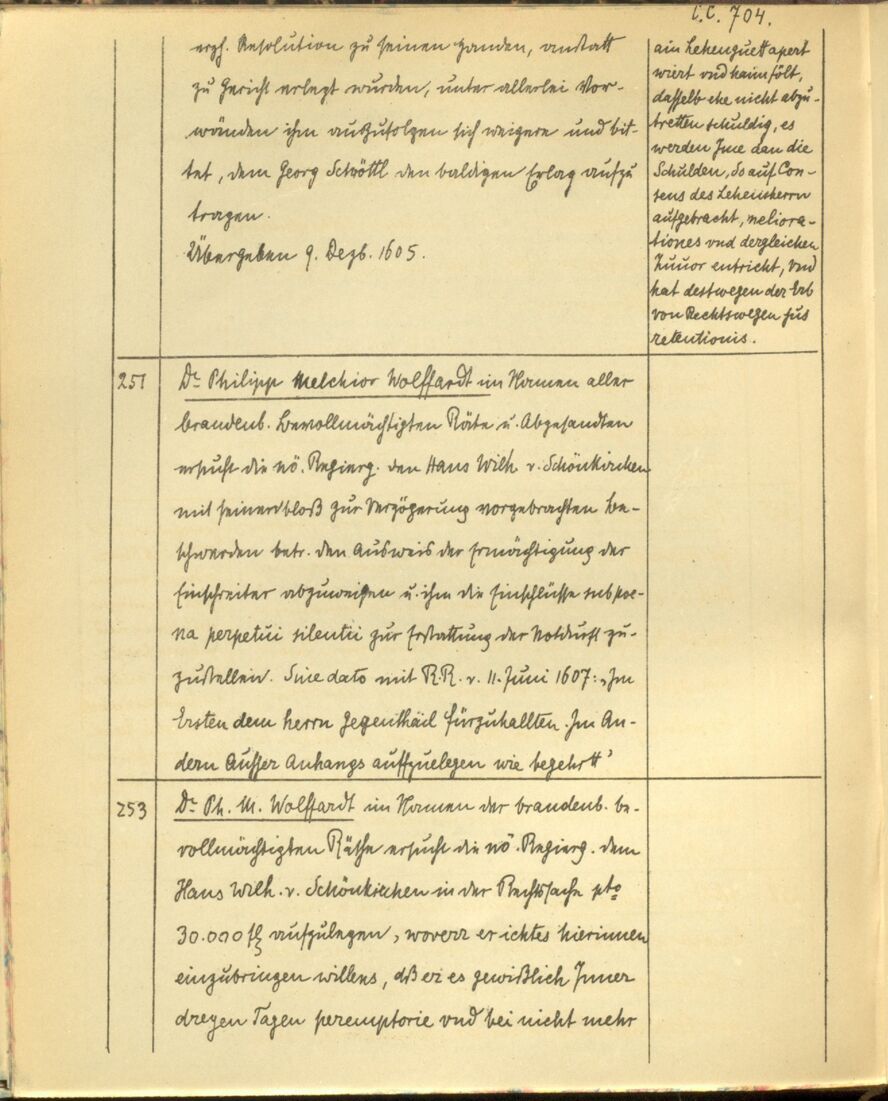 C.C. 704.
erzh. Resolution zu seinen Handen, anstatt
zu Gericht erlegt wurden, unter allerlei Vor-
wänden ihm auszufolgen sich weigere und bit-
tet, dem Georg Schröttl den baldigen Erlag aufzu
tragen.
Übergeben 9. Dezb. 1605.
ain Lehenguett apert
wiert vnd haimfölt,
dasselb ehe nicht abzu-
tretten schuldig, es
werden Jme dan die
Schulden, so auf Con-
sens des Lehensherrn
aufgebracht, meliora-
tiones vnd dergleichen
zuuor entricht, vnd
hat destwegen der Erb
von Rechtswegen jus
retentionis.
251 Dr Philipp Melchior Wolffardt im Namen aller
brandenb. bevollmächtigten Räte u. Abgesandten
ersucht die nö. Regierg. den Hans Wilh v. Schönkirchen
mit seinen bloß zur Verzögerung vorgebrachten Be-
schwerden betr. den Ausweis der Ermächtigung der
Einschreiter abzuweisen u. ihm die Einschlüsse sub poe-
na perpetui silentii zur Erstattung der Notdurft zu-
zustellen. Sine dato mit R.R. v. 11. Juni 1607: „Im
Ersten dem herrn Gegenthail fürzuhallten. Im An-
dern Ausser Anhangs auffzuelegen wie begehrtt"
253 Dr Ph. M. Wolffardt im Namen der brandenb. be-
vollmächtigten Räthe ersucht die nö. Regierg. dem
Hans Wilh. v. Schönkirchen in der Rechtssache pto
30.000 fl aufzulegen, woverr er ichtes hierinnen
einzubringen willens, dß er es gewißlich Inner
dreyen Tagen peremptorie vnd bei nicht mehr